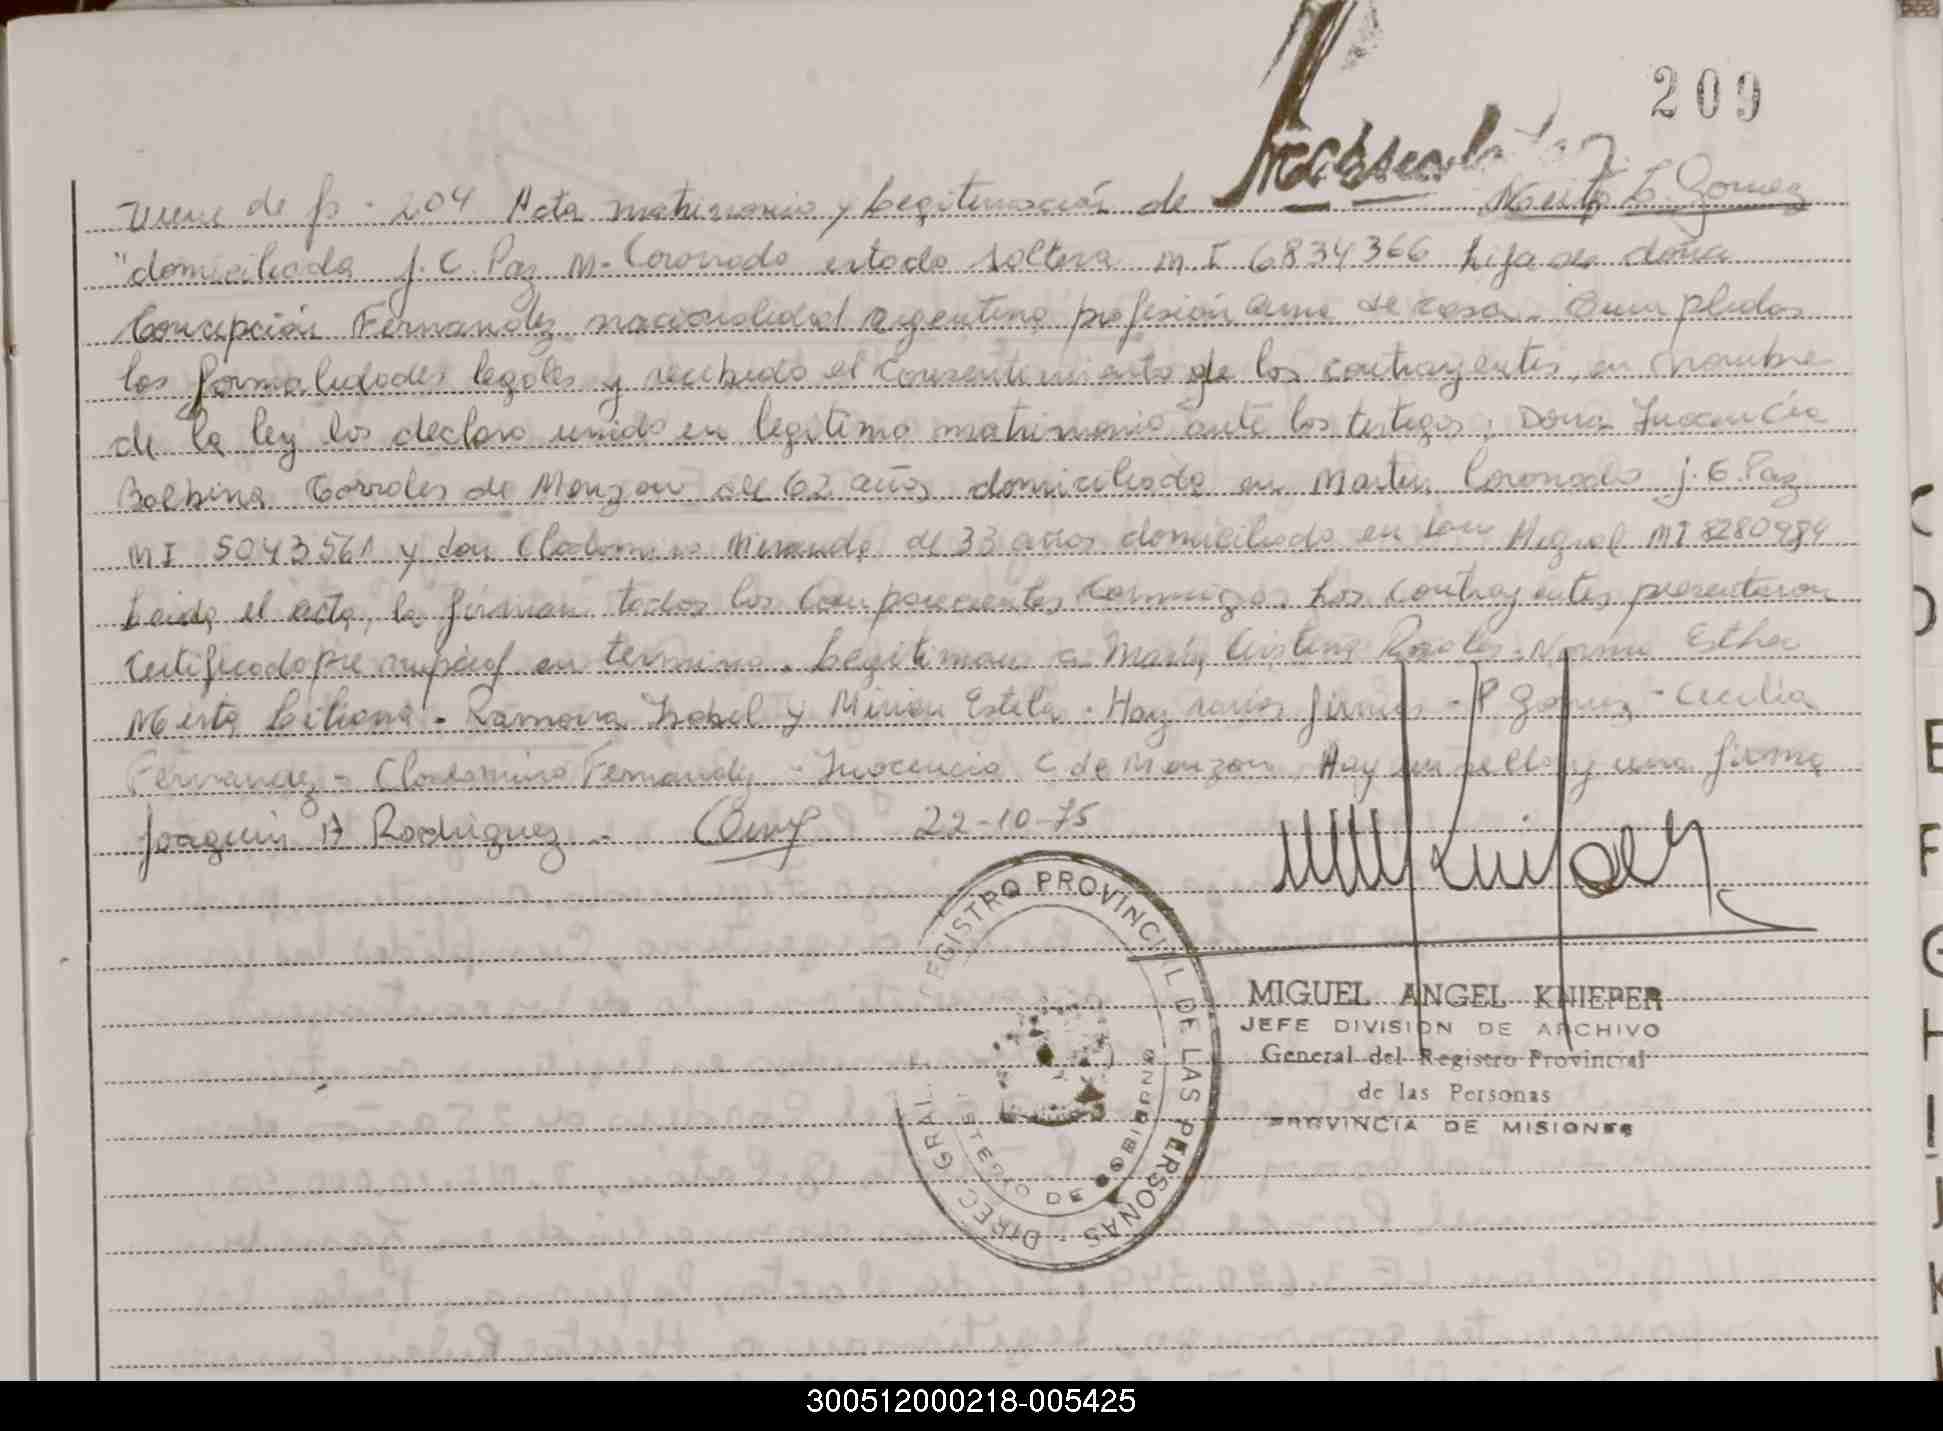 209
Viene de fs - 204 Acta matrimonio y Legitimación de Mirta L. Gomez
"domiciliada J. C. Paz M. Coronado estado soltera M I 6834366 hija de doña
Concepción Fernandez nacionalidad argentina profesión ama de casa. Cumplidas
las formalidades legales y recibido el consentimiento de los contrayentes, en nombre
de la ley los declaro unido en legitimo matrimonio ante los testigos; Dona Inocencia
Balbina Corrales de Monzon de 62 años domiciliada en Martin Coronado J. C. Paz
MI 5043561 y don Clodomiro Miranda de 33 años domiciliado en San Miguel MI 8280984
Leida el acta, la firman todos los comparecientes conmigo. Los contrayentes presentaron
certificado pre nupcial en termino. Legitiman a María Cristina Rosales - Norma Esther
Mirta Liliana - Ramona Isabel y Mirian Estela - Hay varias firmas - P Gomez - Cecilia
Fernandez - Clodomiro Fernandez - Inocencia C de Monzon. Hay un sello y una firma
Joaquin A Rodriguez - 22-10-75
DIREC. GRAL. REGISTRO PROVINCIAL DE LAS PERSONAS
MIGUEL ANGEL KNIEPER
JEFE DIVISION DE ARCHIVO
General del Registro Provincial
de las Personas
PROVINCIA DE MISIONES
300512000218-005425